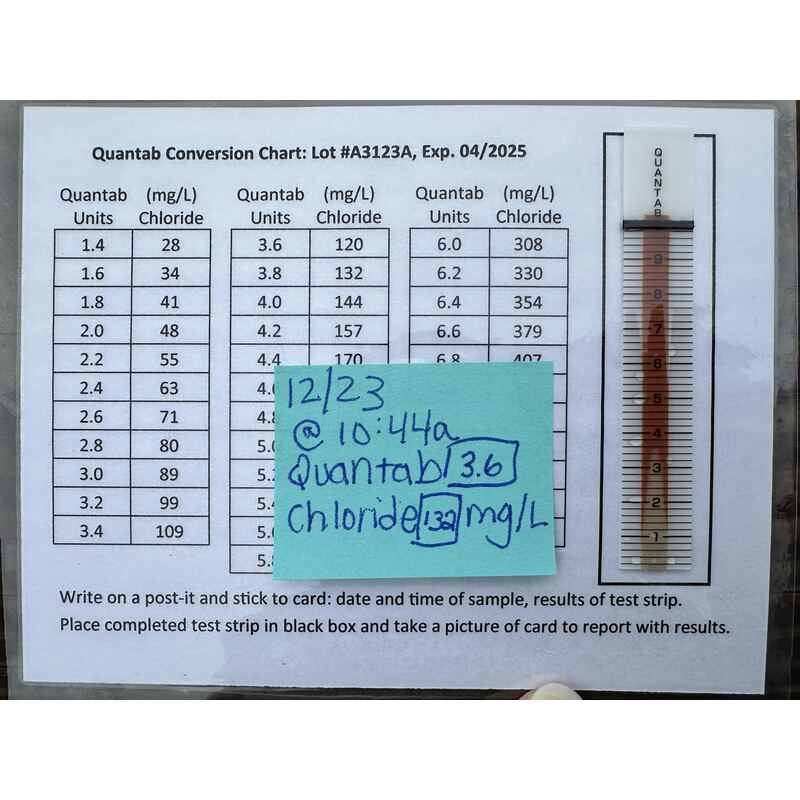 Quantab Conversion Chart: Lot #A3123A, Exp. 04/2025
Quantab (mg/L)
Units Chloride
1.4 28
1.6 34
1.8 41
2.0 48
2.2 55
2.4 63
2.6 71
2.8 80
3.0 89
3.2 99
3.4 109
Quantab (mg/L)
Units Chloride
3.6 120
3.8 132
4.0 144
4.2 157
4.4 170
4.8
5.0
Quantab (mg/L)
Units Chloride
6.0 308
6.2 330
6.4 354
6.6 379
6.8 407
12/23
@ 10:44a
Quantab 3.6
Chloride 132 mg/L
QUANTAB
9
8
7
6
5
4
3
2
1
Write on a post-it and stick to card: date and time of sample, results of test strip.
Place completed test strip in black box and take a picture of card to report with results.